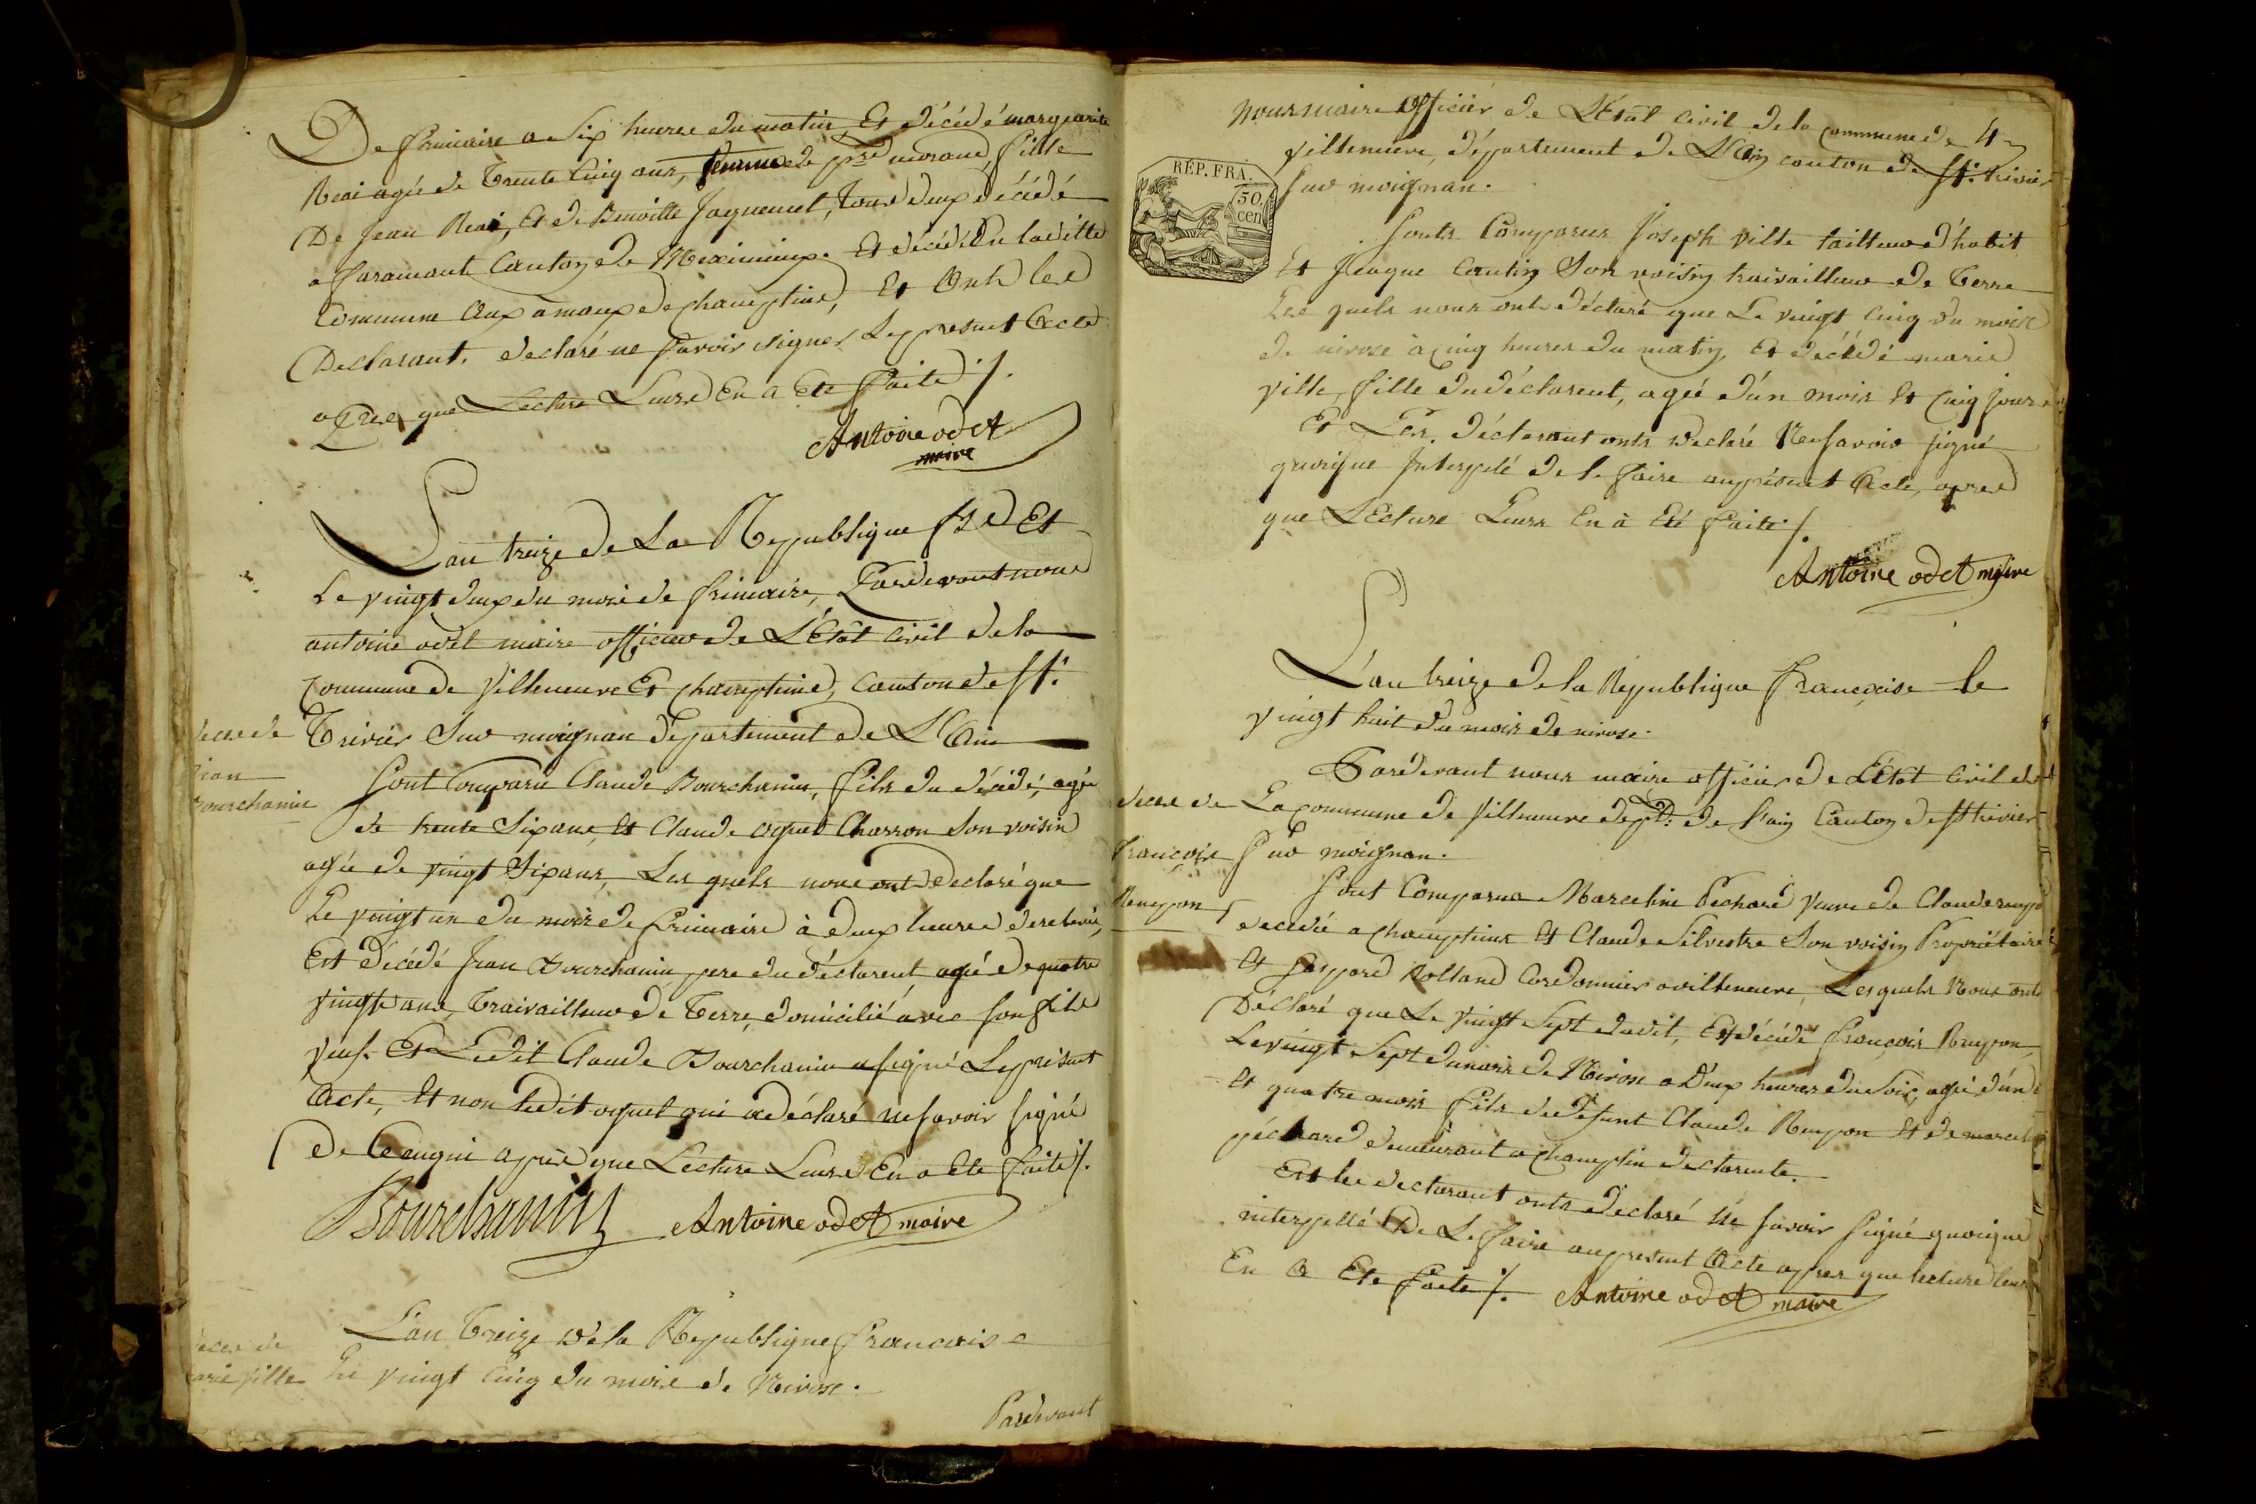 De frimaire a Six heures du matin, Et décédé marguerite
Reai agée de Trente Cinq ans, femme de pre morand, fille
De Jean Reai, Et de Benoitte Jaquemet, tous deux décédé
a faramant Canton de Meximieux. Et décédé En laditte
Commune aux amaux de champtins, Et Onts les
Declarant. declaré ne Savoir signer Le present Acte
apres que Lecture Leurs En a Ete faite ./.
Antoine odet
maire
L'an treize de La Republique fse Et
Le vingt deux du mois de frimaire, Pardevant nous
antoine odet maire officier de L'Etat Civil de la
Commune de Villeneuve Et champtins, canton de St.
Trivier Sur moignan département de L'Ain
deces de
Jean
Bourchanin
Sont Comparu Claude Bourchanin, fils du décédé, agée
de trente Six ans, Et Claude oguet Charron Son voisin
agée de vingt Six ans, Les quels nous ont Declaré que
Le vingt un du mois de frimaire à deux heures de relevée,
Est décédé Jean Bourchanin, pere du déclarent, agé de quatre
vingts ans, Travailleur de Terre, domicilié avec Son fils
veuf. Et Ledit Claude Bourchanin a signé Le présent
Acte, Et non Ledit oguet qui a déclaré ne Savoir signé
De Ce enquis après que Lecture Leurs En a Ete faite ./.
Bourchanin Antoine odet maire
deces de
marie ville
L'an Treize De la Republique francaise
Le vingt Cinq du mois de Nivose.
Pardevant
4
nous maire Officier de L'Etat Civil de la Commune de
villeneuve, département de L'Ain canton de St. trivier
Sur moignan.
RÉP. FRA.
50.
cen
Sonts Comparus Joseph ville tailleur d'habit
Et Jeaque Cautin Son voisin traivailleur de Terre
Les quels nous onts déclaré que Le vingt Cinq du mois
de nivose à Cinq heures du matin, Et décédé marie
ville, fille du déclarent, agée d'un mois Et Cinq jours
Et Les. déclarant onts declaré Ne Savoir signé
quoique Interpelé de le faire au présent Acte, apres
que LEcture Leurs En à Eté faite ./.
Antoine odet maire
L'an treize de la Republique française le
vingt huit du mois de nivose.
Pardevant nous maire officier de L'Etat Civil de
La Commune de Villeneuve dept. de l'ain Canton de St trivier
Sur moignan.
deces de
françois
Reupon
Sont Comparus Marceline Pechard veuve de Claude reupon
decedé a champtins Et Claude Silvestre Son voisin Propriétaire
Et Gaspard Rolland Cordonnier a villeneuve, Lesquels Nous onts
Déclaré que Le vingt Sept dudit, Est décédé françois Reupon,
Le vingt Sept du mois de Nivose a Deux heures du Soir, agé d'un
Et quatre mois fils de Défunt Claude Reupon Et de marceline
péchard demeurant a champtin declarente.
Et les declarant onts déclaré Ne Savoir signé quoique
interpellé De Le faire au present Acte apres que lecture leurs
En a Ete faite ./. Antoine odet maire